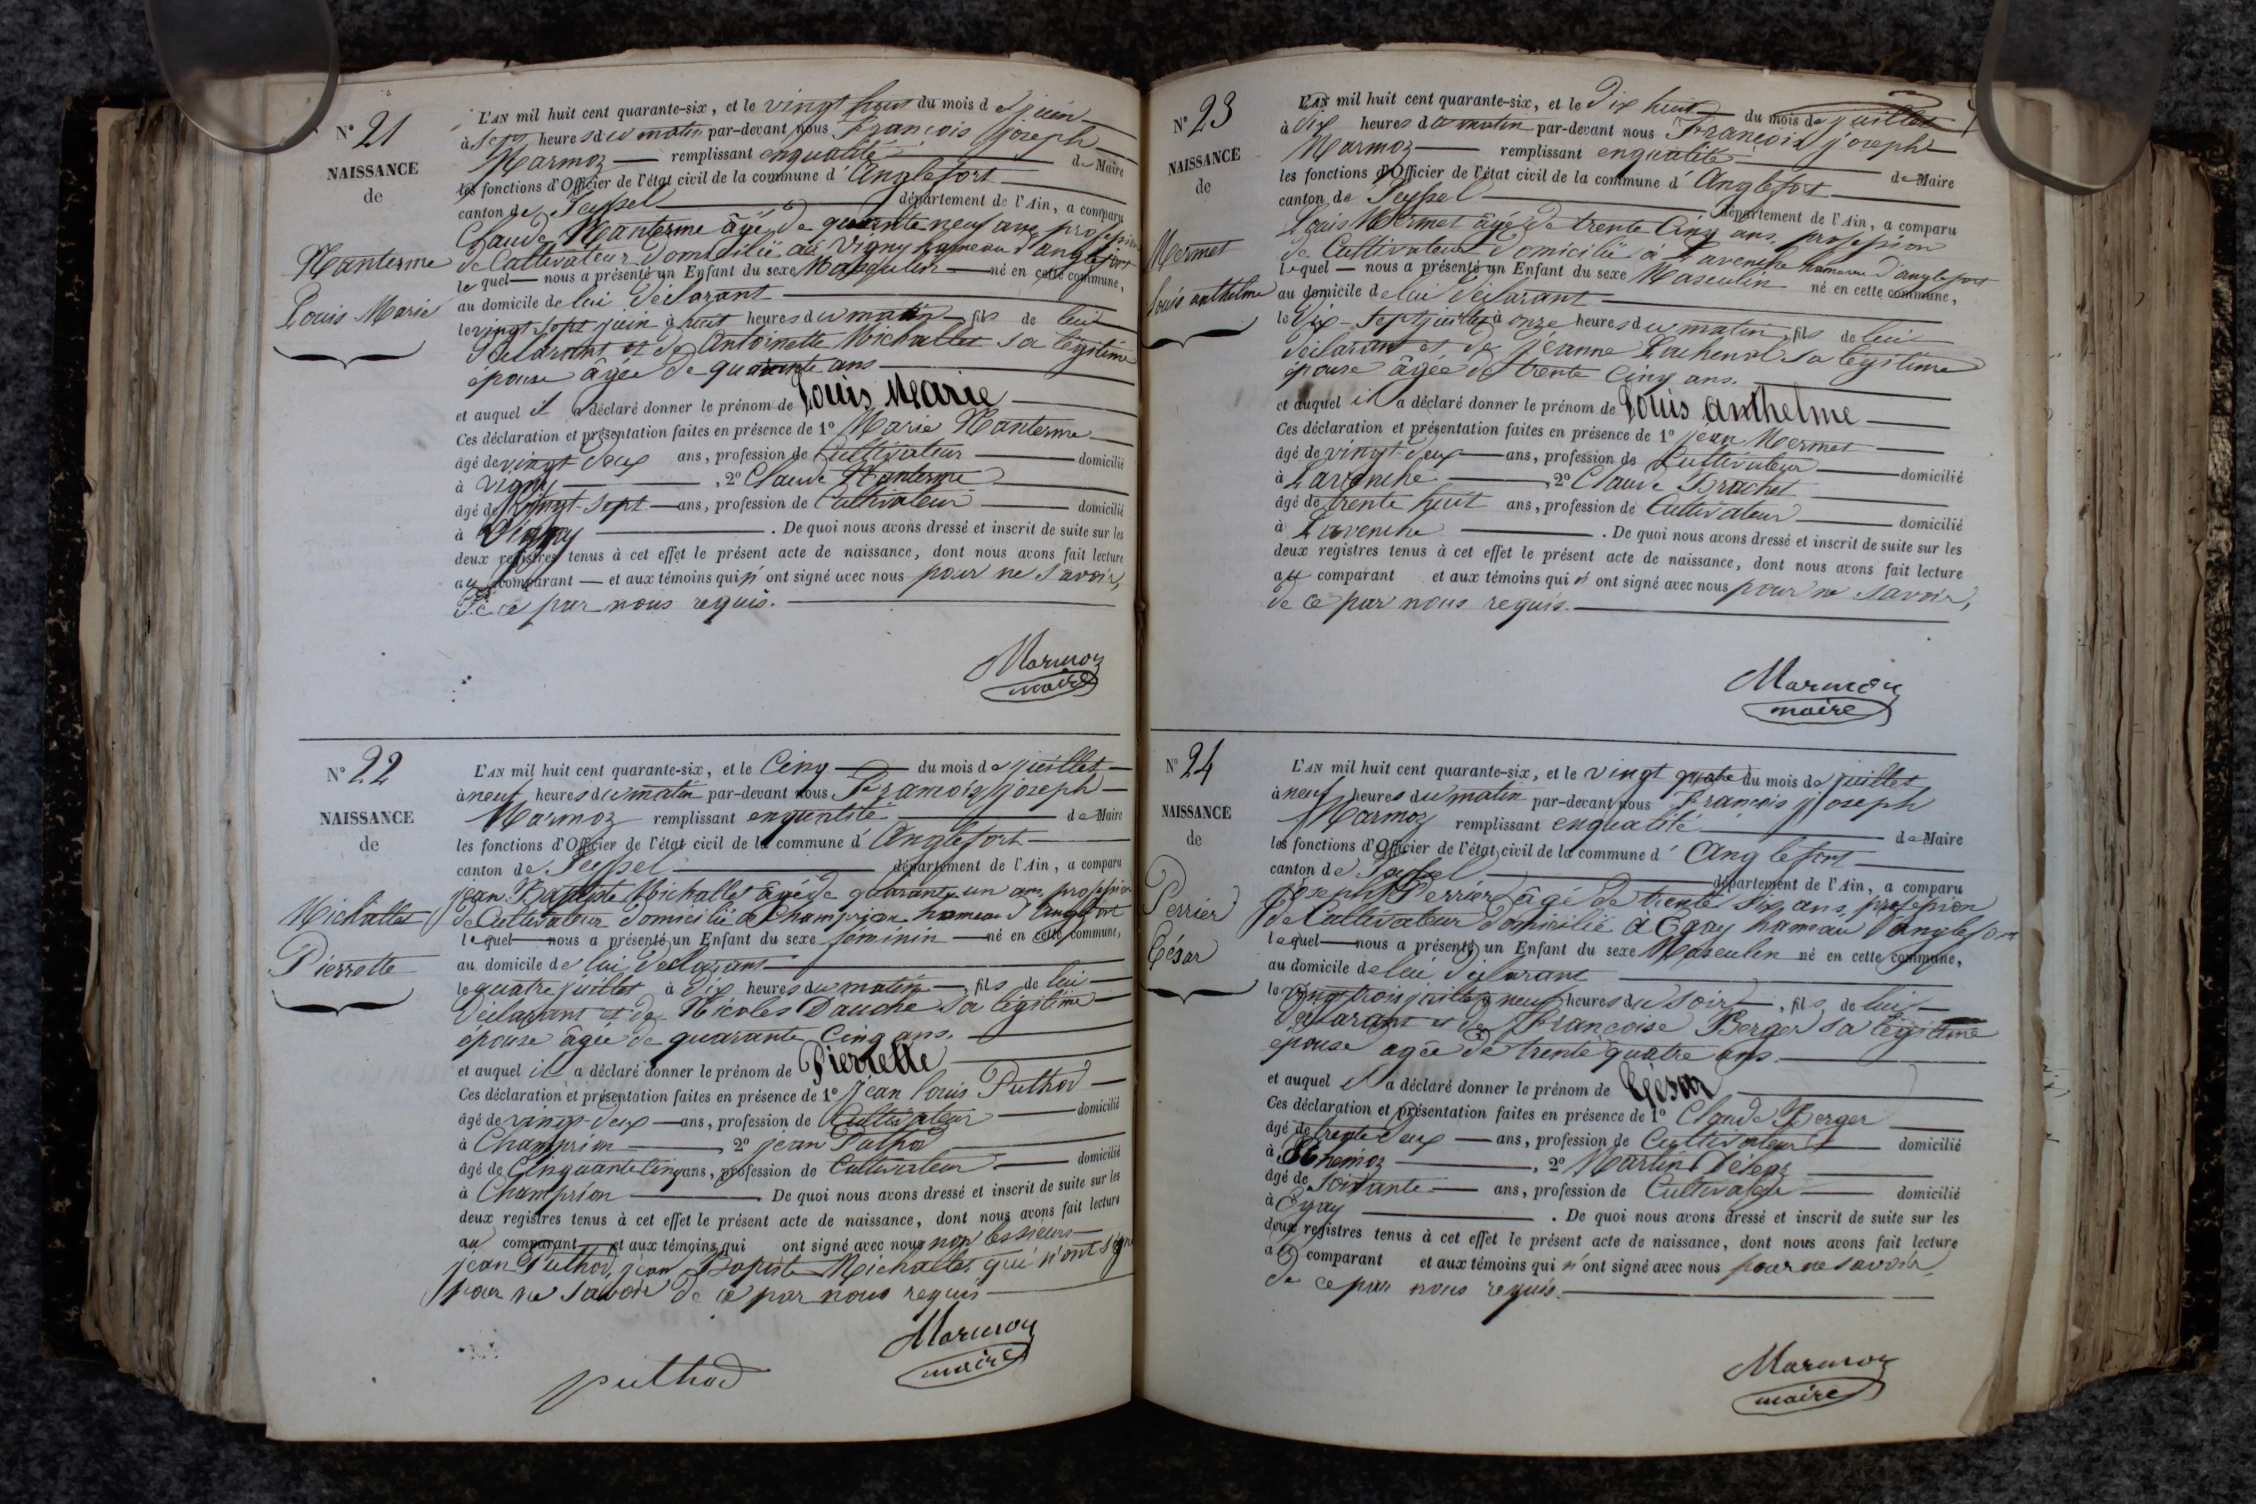 N° 21
NAISSANCE
de
Nanterme
Louis Marie
L'AN mil huit cent quarante-six, et le vingt huit du mois de juin
à sept heures du matin par-devant nous François joseph
Marmoz remplissant enqualité de Maire
les fonctions d'Officier de l'état civil de la commune d'Anglefort
canton de Seyssel département de l'Ain, a comparu
Claude Nanterme âgé de quarante neuf ans, profession
de Cultivateur domicilié à Vigny hameau d'anglefort
lequel nous a présenté un Enfant du sexe Masculin né en cette commune,
au domicile de lui déclarant
le vingt sept juin à huit heures du matin fils de lui
déclarant et de Antoinette Michallet sa légitime
épouse âgée de quarante ans
et auquel il a déclaré donner le prénom de Louis Marie
Ces déclaration et présentation faites en présence de 1° Marie Nanterme
âgé de vingt deux ans, profession de Cultivateur domicilié
à Vigny, 2° Claude Nanterme
âgé de vingt-sept ans, profession de Cultivateur domicilié
à Vigny. De quoi nous avons dressé et inscrit de suite sur les
deux registres tenus à cet effet le présent acte de naissance, dont nous avons fait lecture
au comparant et aux témoins qui n'ont signé avec nous pour ne savoir,
de ce par nous requis.
Marmoz
maire
N° 22
NAISSANCE
de
Michallet
Pierrette
L'AN mil huit cent quarante-six, et le Cinq du mois de juillet
à neuf heures du matin par-devant nous François joseph
Marmoz remplissant enqualité de Maire
les fonctions d'Officier de l'état civil de la commune d'Anglefort
canton de Seyssel département de l'Ain, a comparu
jean Baptiste Michallet âgé de quarante un ans, profession
de Cultivateur domicilié à Champrion hameau d'anglefort
lequel nous a présenté un Enfant du sexe féminin né en cette commune,
au domicile de lui déclarant
le quatre juillet à dix heures du matin, fils de lui
déclarant et de Nicoles Dauche sa légitime
épouse âgée de quarante Cinq ans.
et auquel il a déclaré donner le prénom de Pierrette
Ces déclaration et présentation faites en présence de 1° jean louis Puthod
âgé de vingt deux ans, profession de Cultivateur domicilié
à Champrion, 2° jean Puthod
âgé de Cinquante Cinq ans, profession de Cultivateur domicilié
à Champrion De quoi nous avons dressé et inscrit de suite sur les
deux registres tenus à cet effet le présent acte de naissance, dont nous avons fait lecture
au comparant et aux témoins qui ont signé avec nous non les sieurs
jean Puthod, jean Baptiste Michallet, qui n'ont signé
pour ne savoir de ce par nous requis
Marmoz
maire
puthod
N° 23
NAISSANCE
de
Mermet
Louis anthelme
L'AN mil huit cent quarante-six, et le dix huit du mois de juillet
à dix heures du matin par-devant nous François joseph
Marmoz remplissant enqualité de Maire
les fonctions d'Officier de l'état civil de la commune d'Anglefort
canton de Seyssel département de l'Ain, a comparu
Louis Mermet âgé de trente Cinq ans, profession
de Cultivateur domicilié à Lavenche hameau d'anglefort
lequel nous a présenté un Enfant du sexe Masculin né en cette commune,
au domicile de lui déclarant
le dix-sept juillet à onze heures du matin, fils de lui
déclarant et de jéanne Lachenal sa légitime
épouse âgée de trente Cinq ans.
et auquel il a déclaré donner le prénom de Louis anthelme
Ces déclaration et présentation faites en présence de 1° jean Mermet
âgé de vingt deux ans, profession de Cultivateur domicilié
à Lavenche, 2° Claude Brachet
âgé de trente huit ans, profession de Cultivateur domicilié
à Lavenche. De quoi nous avons dressé et inscrit de suite sur les
deux registres tenus à cet effet le présent acte de naissance, dont nous avons fait lecture
au comparant et aux témoins qui n'ont signé avec nous pour ne savoir,
de ce par nous requis.
Marmoz
maire
N° 24
NAISSANCE
de
Perrier
César
L'AN mil huit cent quarante-six, et le vingt quatre du mois de juillet
à neuf heures du matin par-devant nous François joseph
Marmoz remplissant enqualité de Maire
les fonctions d'Officier de l'état civil de la commune d'Anglefort
canton de Seyssel département de l'Ain, a comparu
joseph Perrier âgé de trente six ans, profession
de Cultivateur domicilié à Eyay hameau d'anglefort
lequel nous a présenté un Enfant du sexe Masculin né en cette commune,
au domicile de lui déclarant
le vingt trois juillet à neuf heures du soir, fils de lui
déclarant et de françoise Berger sa légitime
épouse agée de trente quatre ans.
et auquel il a déclaré donner le prénom de César
Ces déclaration et présentation faites en présence de 1° Claude Berger
âgé de trente deux ans, profession de Cultivateur domicilié
à, 2° Martin
âgé de soixante ans, profession de Cultivateur domicilié
à Eyay. De quoi nous avons dressé et inscrit de suite sur les
deux registres tenus à cet effet le présent acte de naissance, dont nous avons fait lecture
au comparant et aux témoins qui n'ont signé avec nous pour ne savoir
de ce par nous requis.
Marmoz
maire